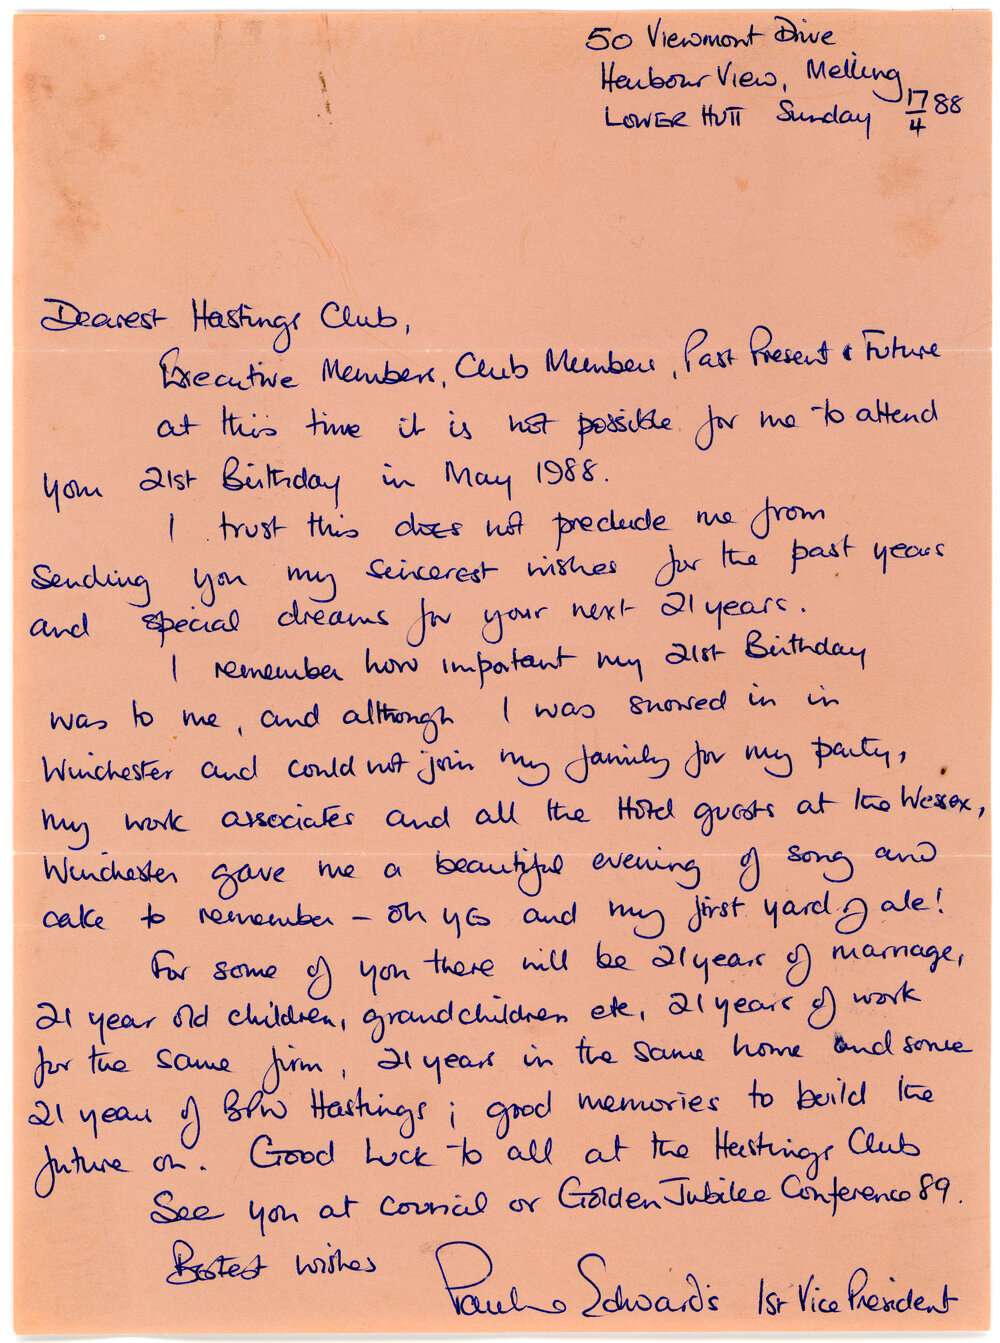 50 Viewmont Drive
Harbour View, Melling
LOWER HUTT Sunday 17/4 88
Dearest Hastings Club,
Executive Members, Club Members, Past Present & Future
at this time it is not possible for me to attend
your 21st Birthday in May 1988.
I trust this does not preclude me from
sending you my sincerest wishes for the past years
and special dreams for your next 21 years.
I remember how important my 21st Birthday
was to me, and although I was snowed in in
Winchester and could not join my family for my party,
my work associates and all the Hotel guests at the Wessex,
Winchester gave me a beautiful evening of song and
cake to remember – oh yes and my first yard of ale!
For some of you there will be 21 years of marriage,
21 year old children, grandchildren etc, 21 years of work
for the same firm, 21 years in the same home and some
21 years of BPW Hastings; good memories to build the
future on. Good Luck to all at the Hastings Club
See you at council or Golden Jubilee Conference 89.
Bestest wishes
Pauline Edwards 1st Vice President